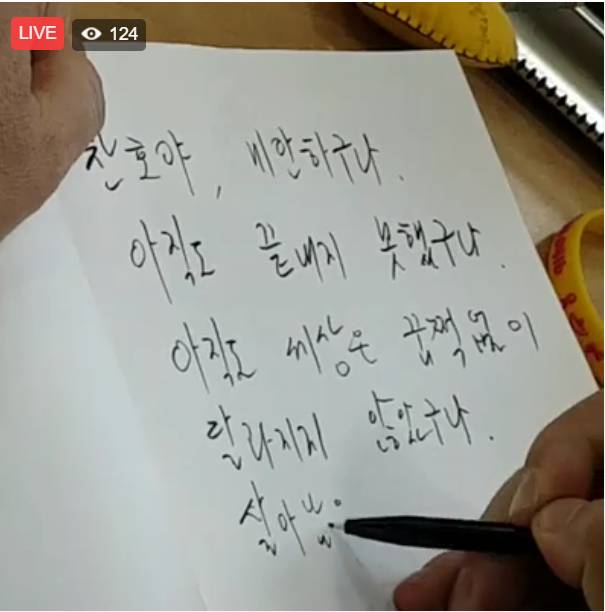 LIVE 124
찬호야, 미안하구나.
아직도 끝내지 못했구나.
아직도 세상은 끔쩍없이
달라지지 않았구나.
살아남